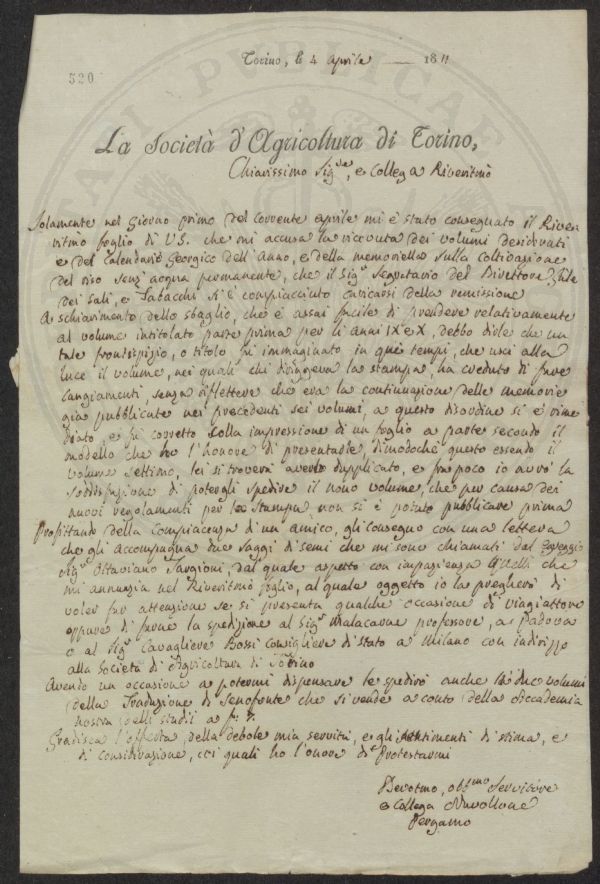 Torino, le 4 Aprile 1811
520
La Società d'Agricoltura di Torino,
Chiarissimo Sig.re, e Collega Riveritmo
Solamente nel giorno primo del corrente aprile mi è stato consegnato il River
ritmo foglio di V.S. che mi accusa la ricevuta dei volumi desiderati
e del Calendario Georgico dell'Anno, e della memorietta sulla Coltivazione
del riso senz'acqua permanente, che il Sig.e Segretario del Direttore
dei sali, e Tabacchi si è compiacciuto caricarsi della remissione
A schiarimento dello sbaglio, che è assai facile di prendere relativamente
al volume intitolato parte prima per li anni IX e X, debbo dirle che un
tale frontispizio, o titolo fu immaginato in que' tempi, che uscì alla
luce il volume, nei quali chi dirigeva la stampa, ha creduto di fare
cangiamenti, senza riflettere che era la continuazione delle memorie
già pubblicate nei precedenti sei volumi, a questo disordine si è rime
diato, e fu corretto colla impressione di un foglio a parte secondo il
modello che ho l'honore di presentarle, dimodochè questo essendo il
volume settimo, lei si troverà averlo dupplicato, e fra poco io avrò la
soddisfazione di potergli spedire il nono volume, che per causa dei
nuovi regolamenti per la stampa non si è potuto pubblicare prima
Profittando della Compiacenza di un amico, gli consegno con una lettera
che gli accompagna due saggi di semi che mi sono chiamati dal
Sig.e Ottaviano Targioni, dal quale aspetto con impazienza quelli che
mi annunzia nel Riveritmo foglio, al quale oggetto io la pregherei di
voler far attenzione se si presenta qualche occasione di viaggiatore
oppure di farne la spedizione al Sig.e Malacarne professore, a Padova
o al Sig.e Cavagliere Bossi Consigliere di Stato a Milano con indirizzo
alla Società di Agricoltura di Torino
Avendo un occasione a potermi dispensare le spedirò anche li due volumi
della Traduzione di Senofonte che si vende a conto della Accademia
nostra delli studii a f:
Gradisca l'offerta della debole mia servitù, e gli sentimenti di stima, e
di considerazione, coi quali ho l'onore di Protestarmi
Devotmo, obb.mo Servitore
e Collega Nuvollone
Pergamo